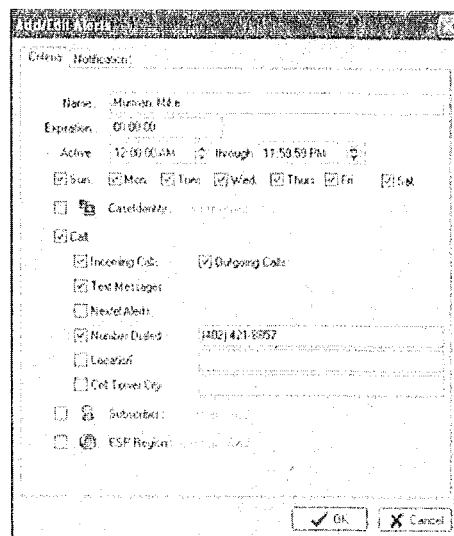 Add/Edit Alerts
Criteria Notification
Name:
Expiration: 00:00:00
Active 12:00:00 AM through 11:59:59 PM
Sun. Mon. Tues. Wed. Thurs. Fri. Sat.
CaseIdentity:
Call
Incoming Calls Outgoing Calls
Text Messages
Nextel Alerts
Number Dialed (402) 421-8957
Location
Cell Tower City
Subscriber:
ESP Region
OK Cancel